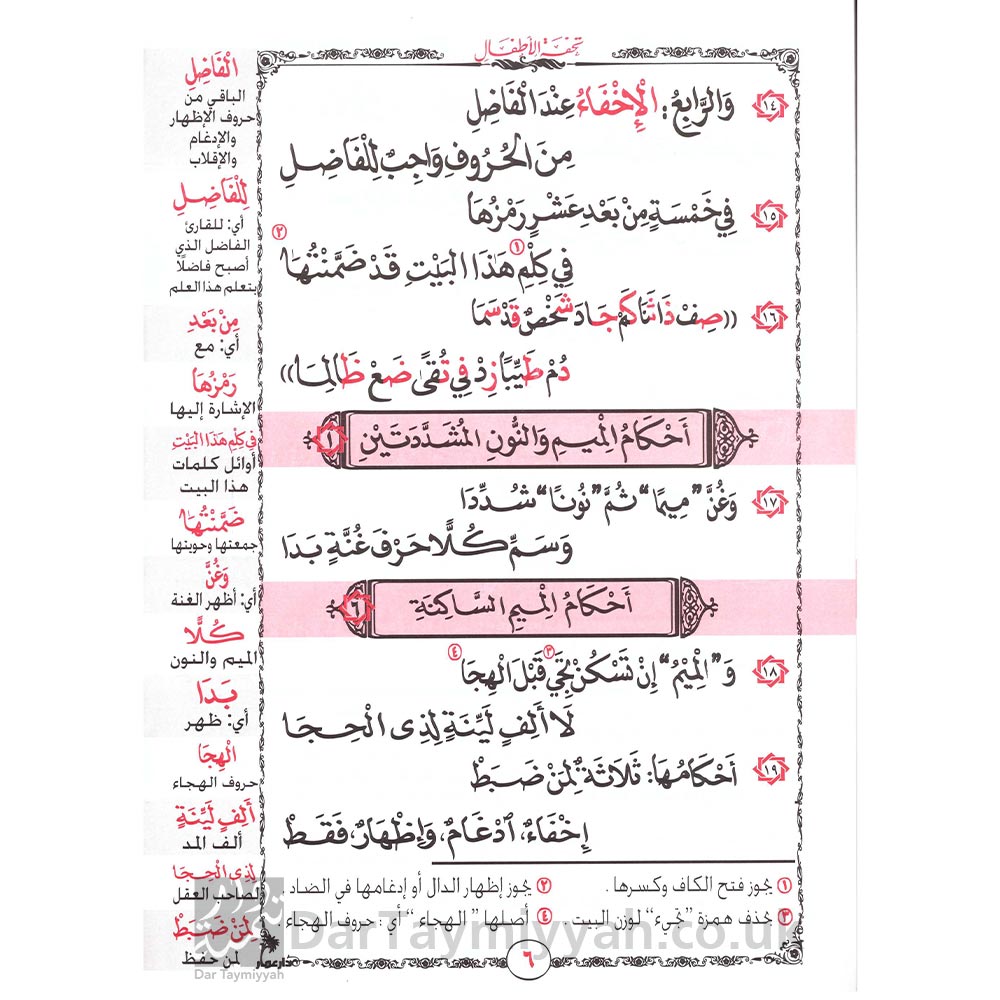 تحفة الأطفال
١٤ وَالرَّابِعُ: الْإِخْفَاءُ عِنْدَ الْفَاضِلِ
مِنَ الحُرُوفِ وَاجِبٌ لِلْفَاضِلِ
١٥ فِي خَمْسَةٍ مِنْ بَعْدِ عَشْرٍ رَمْزُهَا
فِي كِلْمِ ① هَذَا البَيْتِ قَدْ ضَمَّنْتُهَا ②
١٦ ((صِفْ ذَا ثَنَا كَمْ جَادَ شَخْصٌ قَدْ سَمَا
دُمْ طَيِّبًا زِدْ فِي تُقًى ضَعْ ظَالِمَا))
أَحْكَامُ المِيمِ وَالنُّونِ المُشَدَّدَتَيْنِ ١
١٧ وَغُنَّ "مِيمًا" ثُمَّ "نُونًا" شُدِّدَا
وَسَمِّ كُلًّا حَرْفَ غُنَّةٍ بَدَا
أَحْكَامُ الْمِيمِ السَّاكِنَةِ ٦
١٨ وَ"الْمِيْمُ" إِنْ تَسْكُنْ تَجِي ③ قَبْلَ الْهِجَا ④
لَا أَلِفٍ لَيِّنَةٍ لِذِى الْحِجَا
١٩ أَحْكَامُهَا: ثَلَاثَةٌ لِمَنْ ضَبَطْ
إِخْفَاءٌ، ادْغَامٌ، وَإِظْهَارٌ، فَقَطْ
① يجوز فتح الكاف وكسرها .
② يجوز إظهار الدال أو إدغامها في الضاد .
③ تحذف همزة "تجيء" لوزن البيت .
④ أصلها "الهجاء" أي: حروف الهجاء .
٦
الْفَاضِلِ
الباقي من
حروف الإظهار
والإدغام
والإقلاب
لِلْفَاضِلِ
أي: للقارئ
الفاضل الذي
أصبح فاضلًا
بتعلم هذا العلم
مِنْ بَعْدِ
أي: مع
رَمْزُهَا
الإشارة إليها
فِي كِلْمِ هَذَا البَيْتِ
أوائل كلمات
هذا البيت
ضَمَّنْتُهَا
جمعتها وحويتها
وَغُنَّ
أي: أظهر الغنة
كُلًّا
الميم والنون
بَدَا
أي: ظهر
الْهِجَا
حروف الهجاء
أَلِفٍ لَيِّنَةٍ
ألف المد
لِذِى الْحِجَا
لصاحب العقل
لِمَنْ ضَبَطْ
لمن حفظ
Dar Taymiyyah
DarTaymiyyah.co.uk